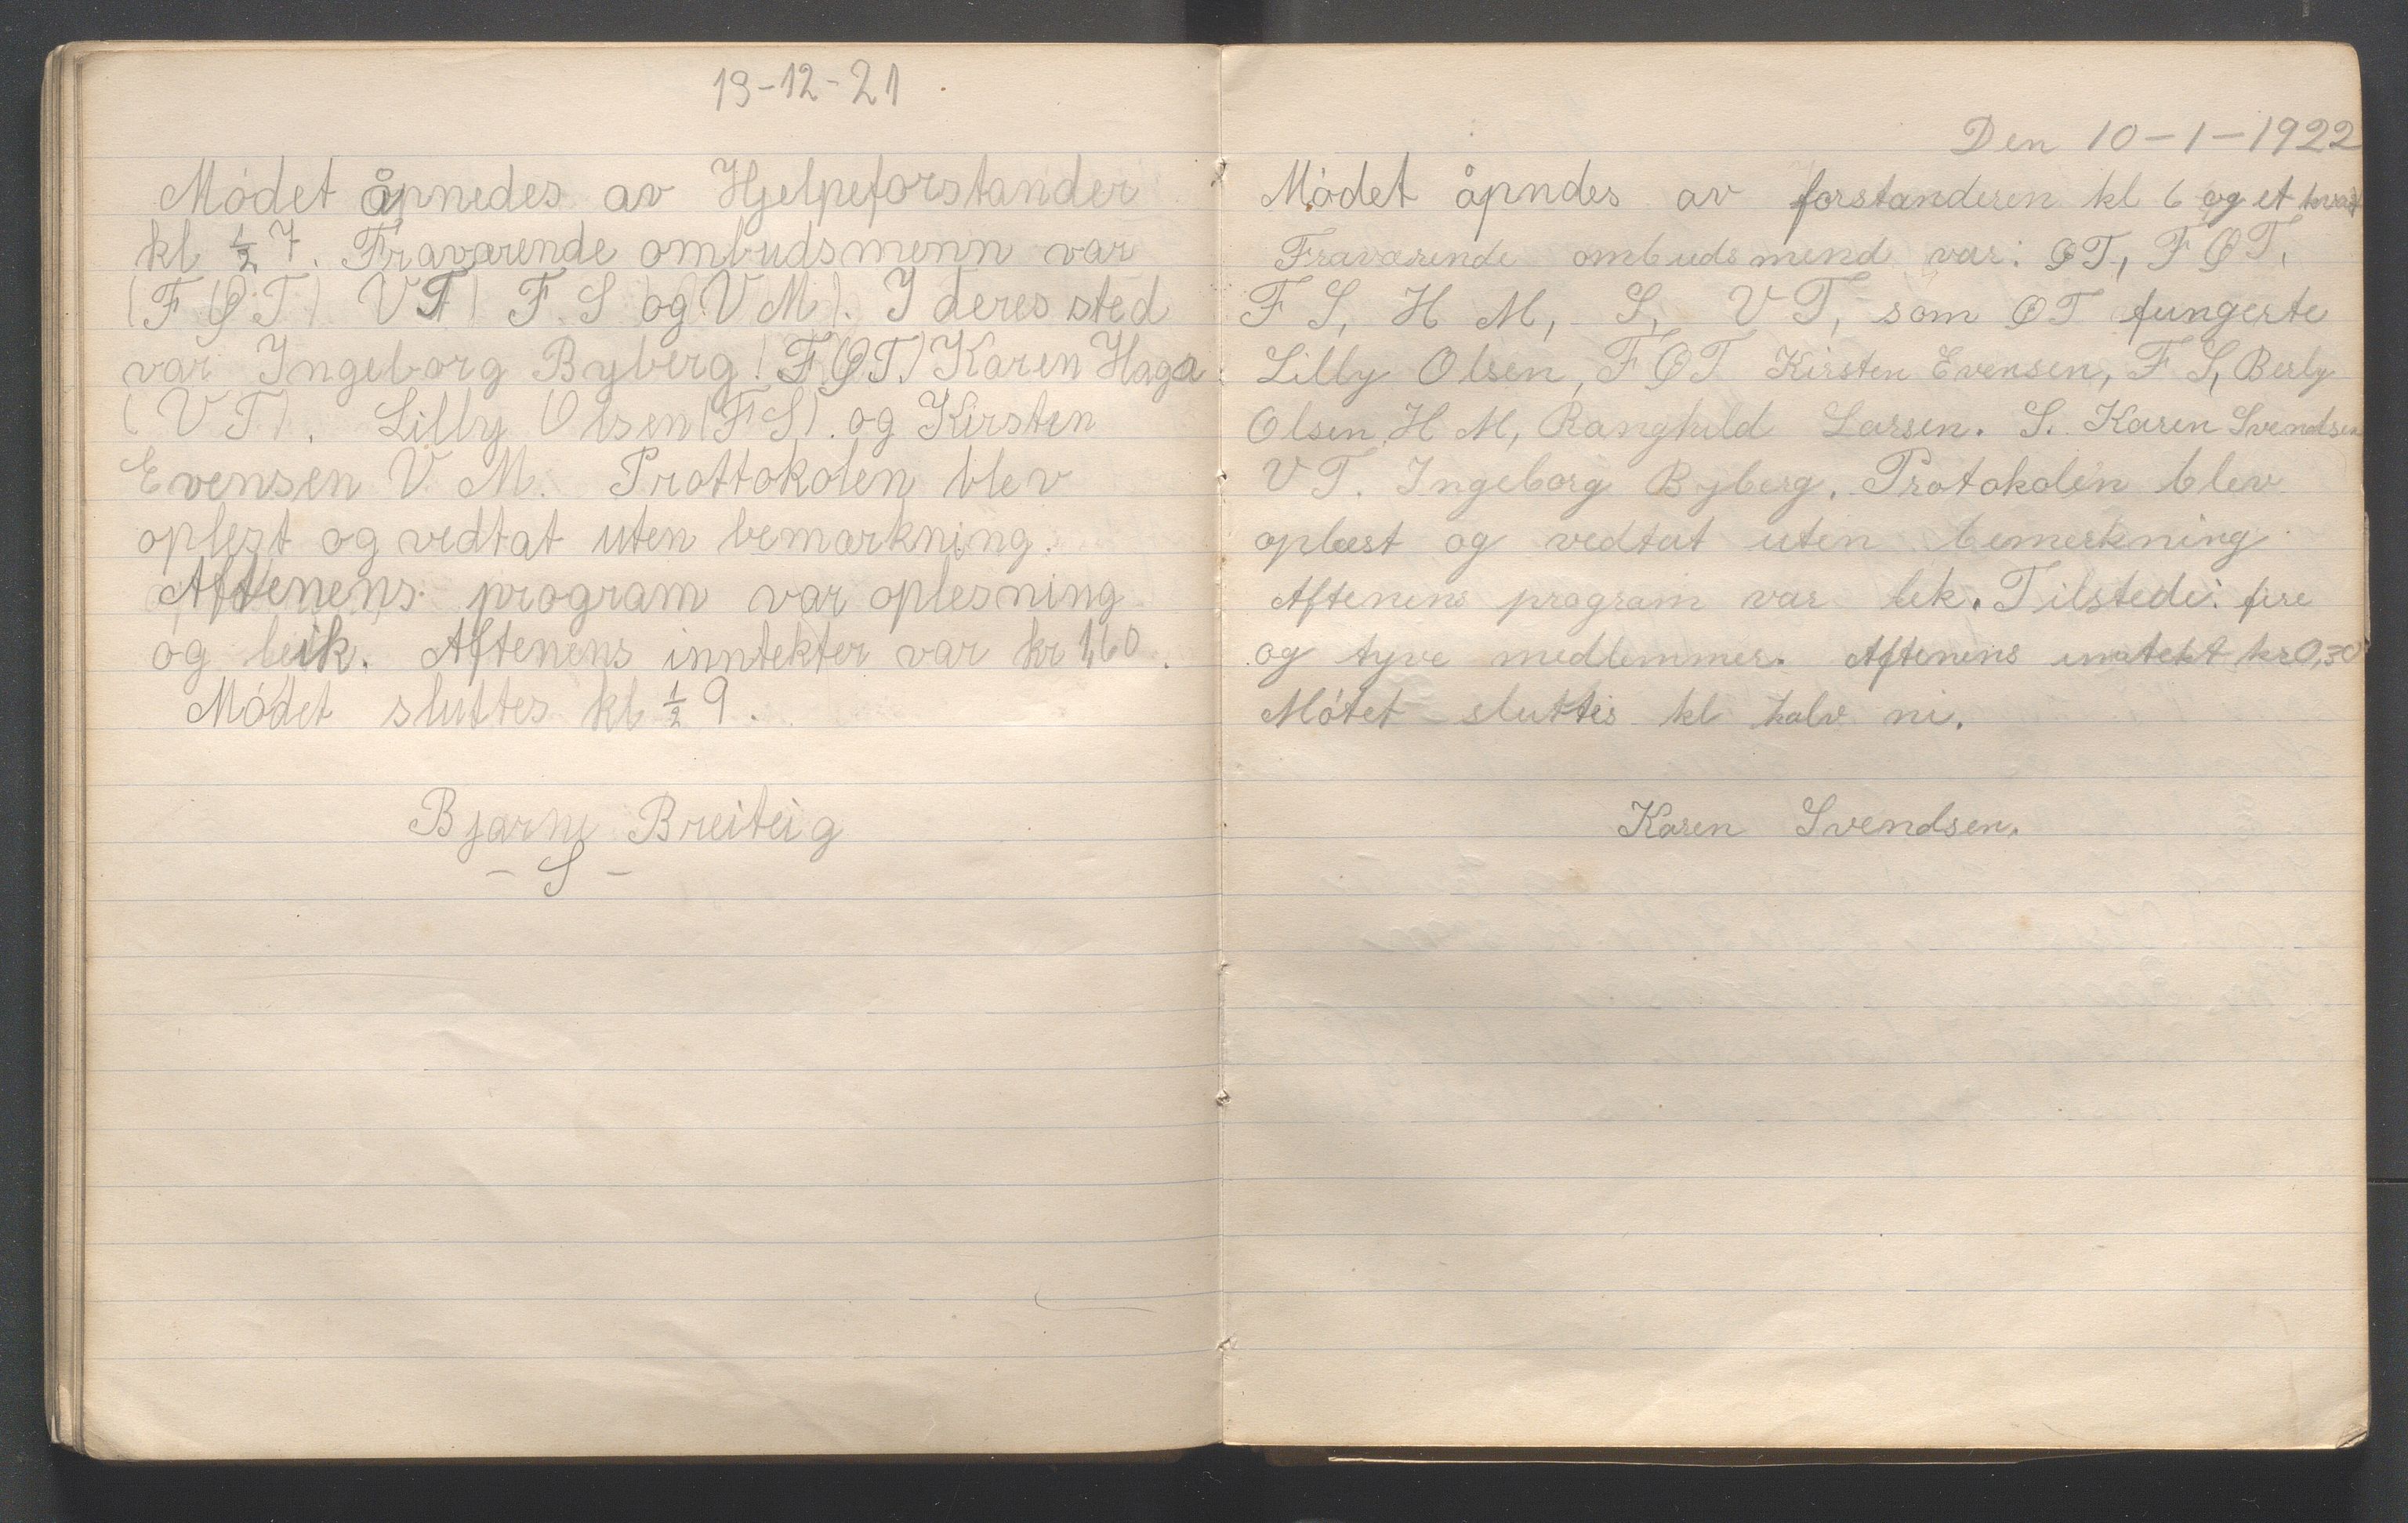 13-12-21.
Módet åpnedes av Hjelpeforstander
kl ½ 7. Fraværende ombudsmenn var
(F Ø T) V T) F. S og V M). I deres sted
var Ingeborg Byberg (F.Ø.T.) Karen Haga
(V T). Lilly Olsen (F S). og Kirsten
Evensen V. M. Prottokolen blev
oplest og vedtat uten bemærkning.
Aftenens program var oplesning
og leik. Aftenens inntekter var kr 1,60.
Módet sluttes kl ½ 9.
Bjarne Breiteig
- S -
Den 10-1-1922
Módet åpndes av forstanderen kl 6 og et kvart
Fraværende ombudsmend var: ØT, F Ø T,
F S, H M, S, V T, som ØT fungerte
Lilly Olsen, F Ø T Kirsten Evensen, F S, Berly
Olsen H M, Ranghild Larsen. S. Karen Svendsen
V T. Ingeborg Byberg. Protokolen blev
oplæst og vedtat uten bemerkning
Aftenens program var lek. Tilstede: fire
og tyve medlemmer. Aftenens inntekt kr 0,30
Mótet sluttes kl halv ni.
Karen Svendsen.